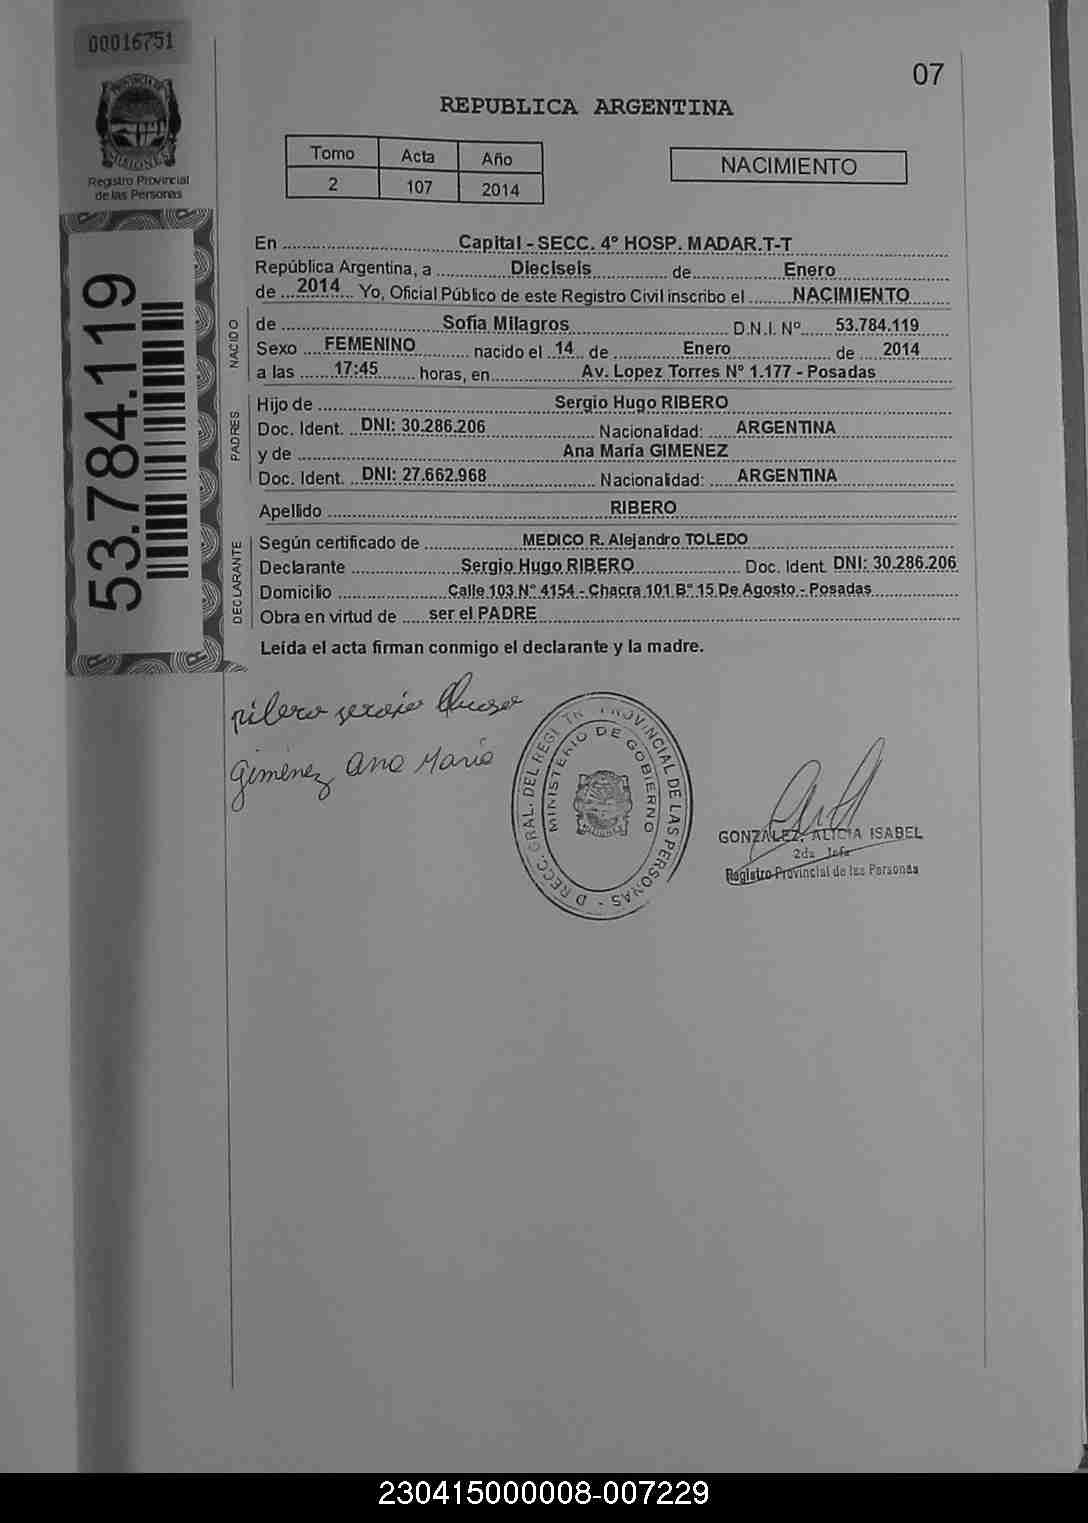 00016751
PROVINCIA DE
MISIONES
Registro Provincial
de las Personas
53.784.119
07
REPUBLICA ARGENTINA
Tomo Acta Año
2 107 2014
NACIMIENTO
En Capital - SECC. 4º HOSP. MADAR.T-T
República Argentina, a Dieciseis de Enero
de 2014 Yo, Oficial Público de este Registro Civil inscribo el NACIMIENTO
NACIDO
de Sofia Milagros D.N.I. Nº 53.784.119
Sexo FEMENINO nacido el 14 de Enero de 2014
a las 17:45 horas, en Av. Lopez Torres N° 1.177 - Posadas
PADRES
Hijo de Sergio Hugo RIBERO
Doc. Ident. DNI: 30.286.206 Nacionalidad: ARGENTINA
y de Ana María GIMENEZ
Doc. Ident. DNI: 27.662.968 Nacionalidad: ARGENTINA
Apellido RIBERO
DECLARANTE
Según certificado de MEDICO R. Alejandro TOLEDO
Declarante Sergio Hugo RIBERO Doc. Ident. DNI: 30.286.206
Domicilio Calle 103 N° 4154 - Chacra 101 B° 15 De Agosto - Posadas
Obra en virtud de ser el PADRE
Leída el acta firman conmigo el declarante y la madre.
ribero sergio Hugo
Gimenez Ana María
D RECC. GRAL. DEL REGI TR PROVINCIAL DE LAS PERSONAS -
MINISTERIO DE GOBIERNO
GONZALEZ, ALICIA ISABEL
2da Jefa
Registro Provincial de las Personas
230415000008-007229